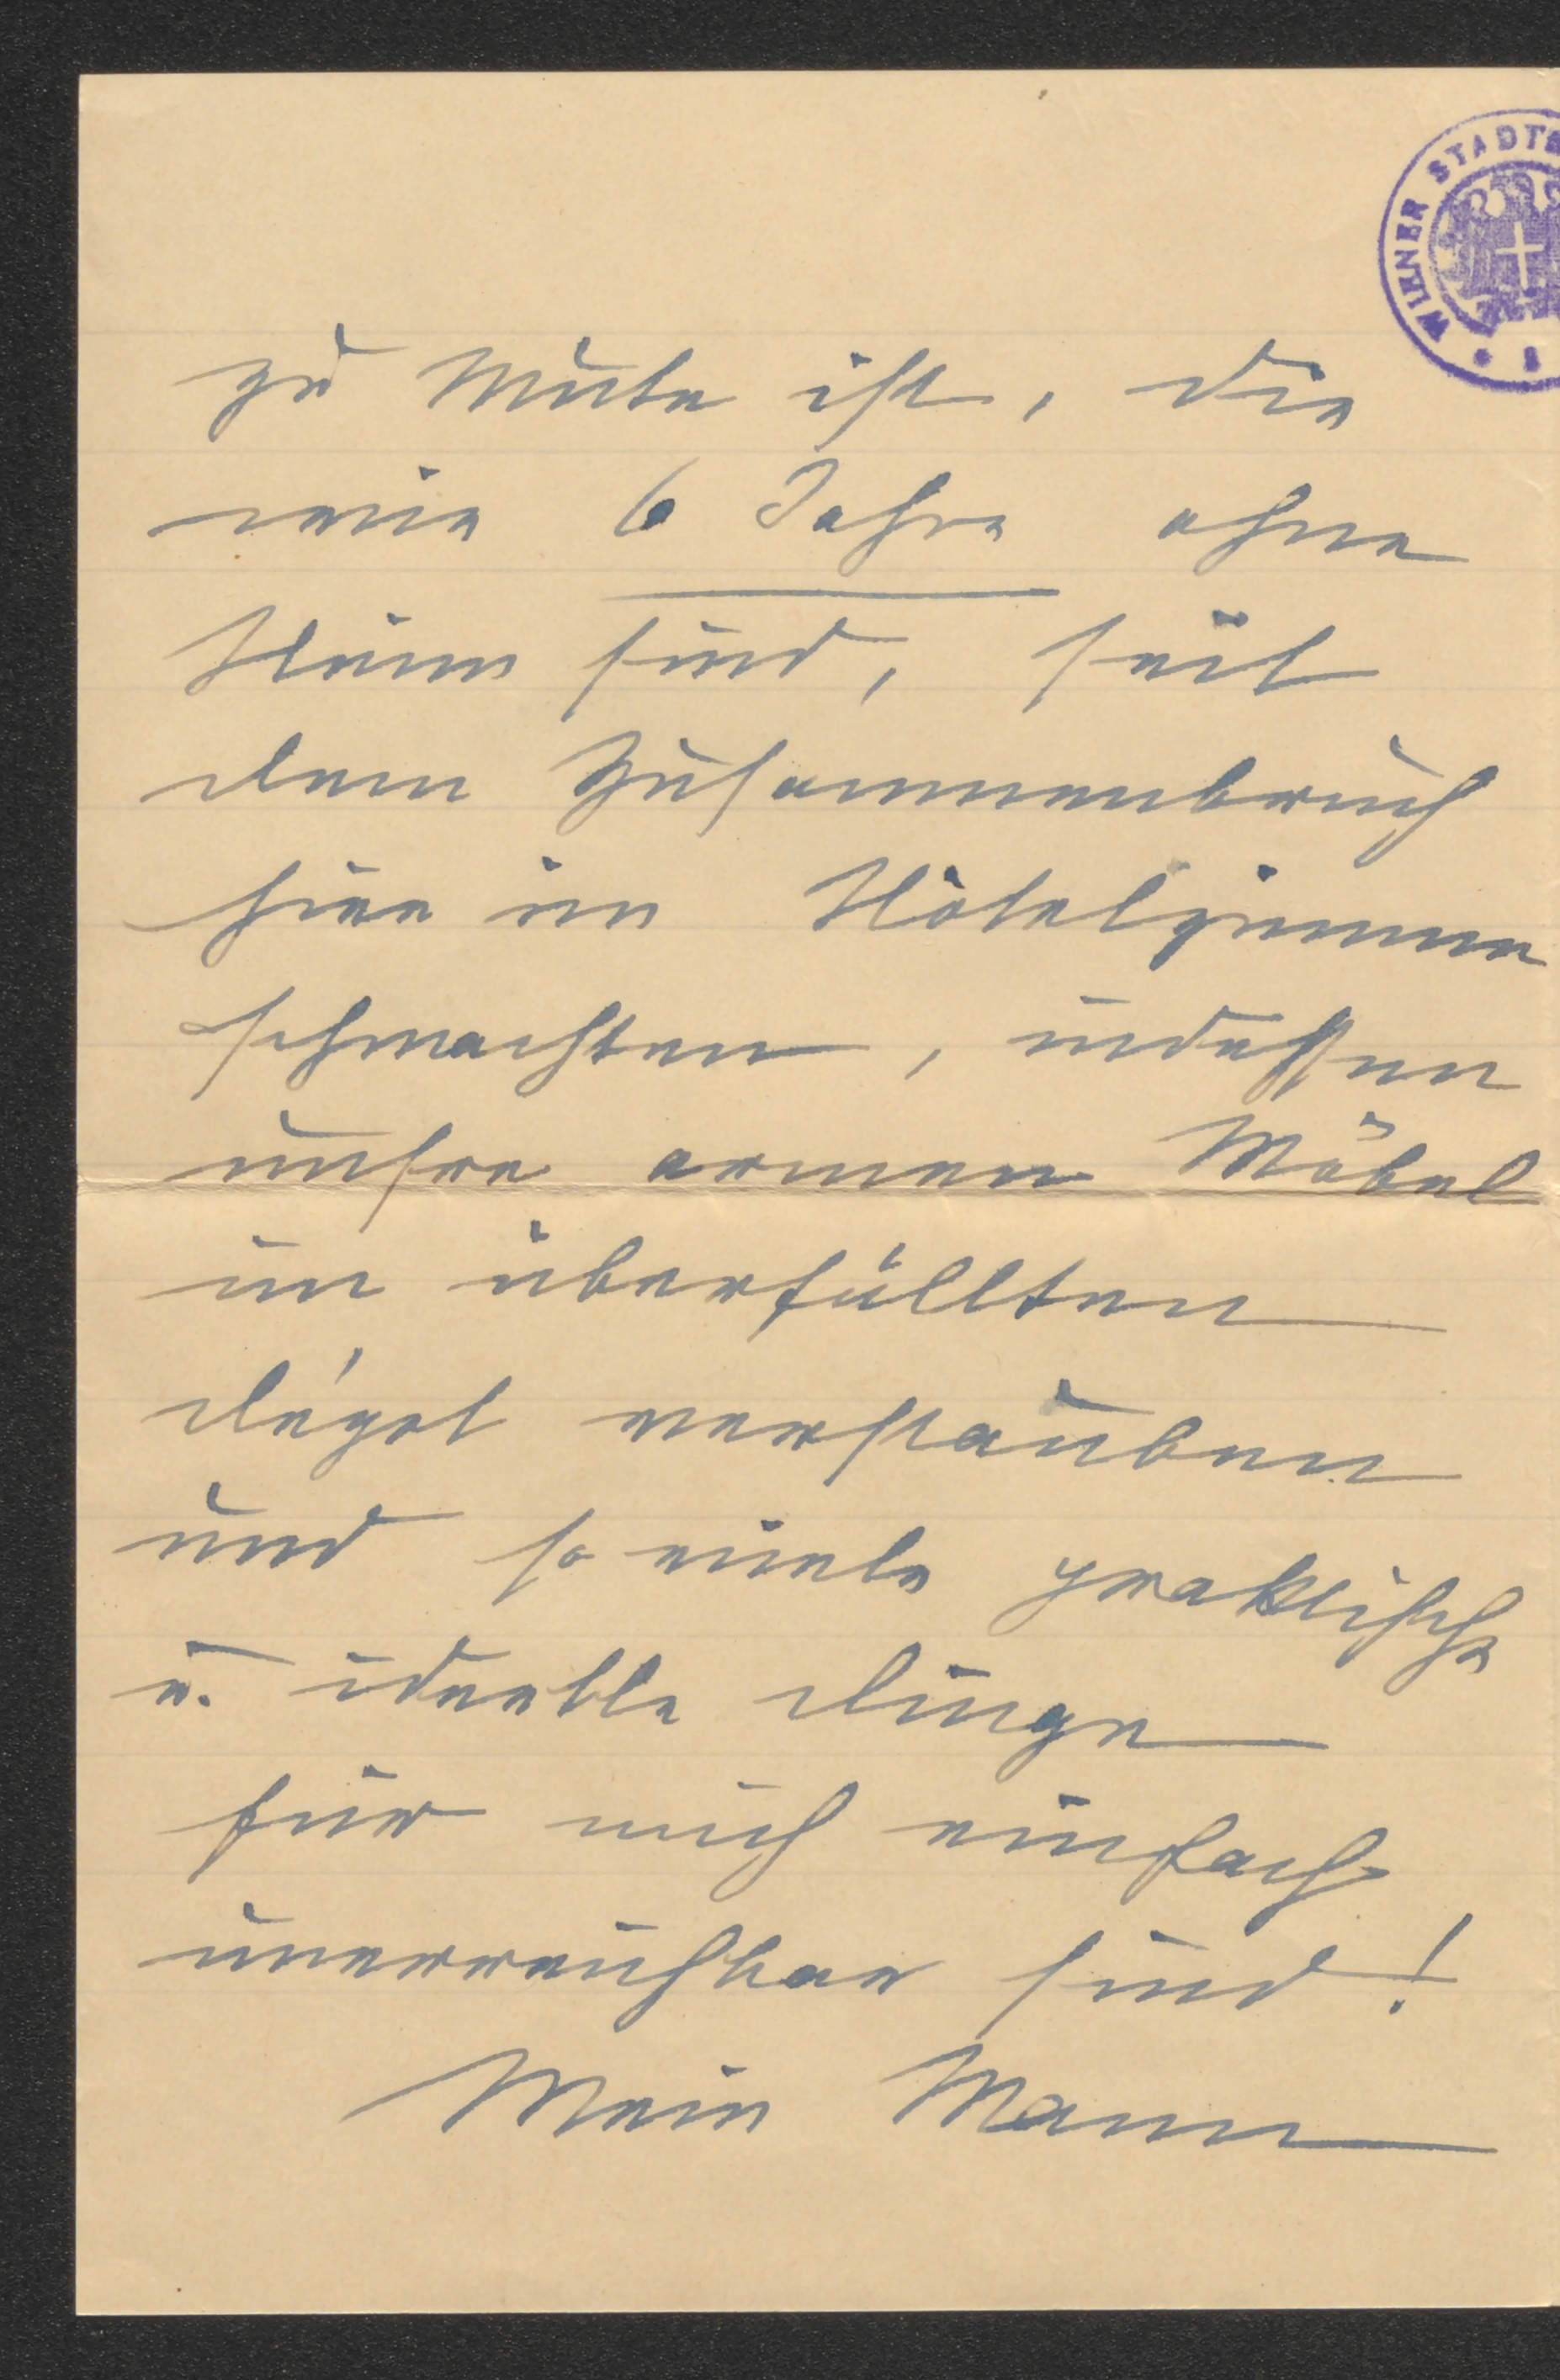 WIENER STADTB
zu Mute ist, die
wir 6 Jahre ohne
Heim sind, seit
dem Zusammenbruch
hier im Hôtelzimmer
schmachten, indessen
unsre armen Möbel
im überfüllten
dépot verstauben
und so viele praktische
u. ideelle Dinge
für mich einfach
unerreichbar sind!
Mein Mann